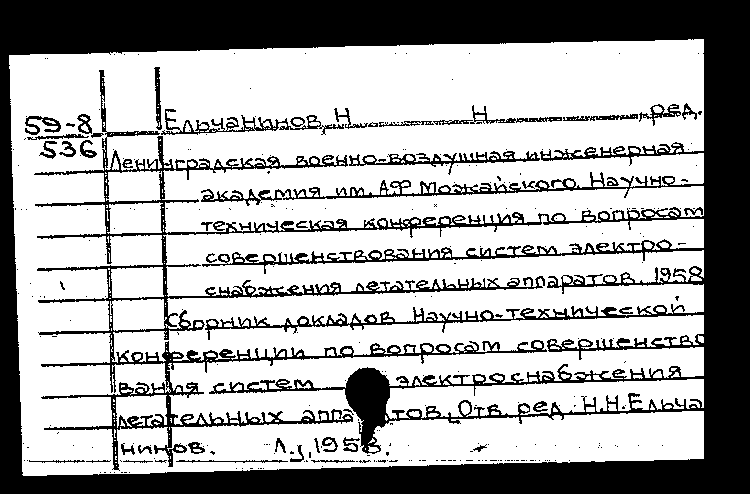 59-8 Ельчанинов, Н Н ред.
536 Ленинградская военно-воздушная инженерная
академия им. А.Ф Можайского. Научно-
техническая конференция по вопросам
совершенствования систем электро-
снабжения летательных аппаратов. 1958
Сборник докладов Научно-технической
конференции по вопросам совершенство
вания систем электроснабжения
летательных аппа тов. Отв. ред. Н.Н.Ельча
нинов. Л., 1958.